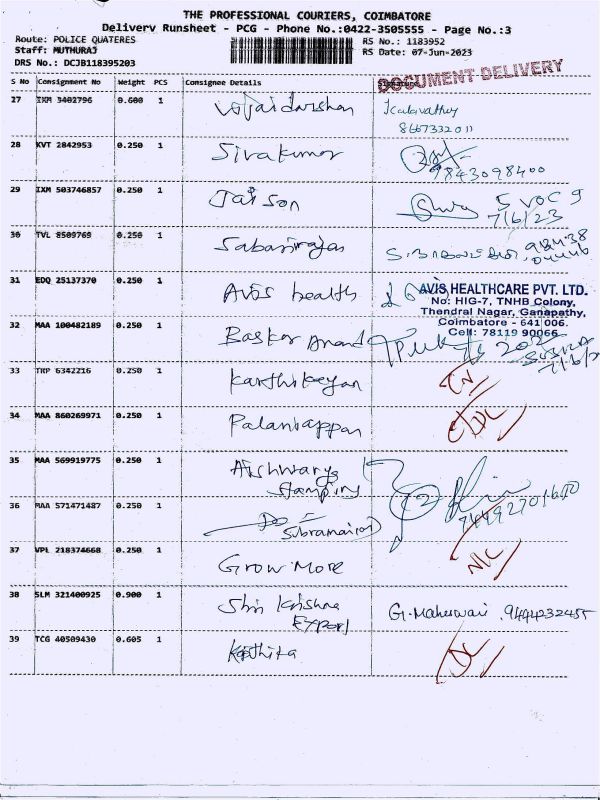 THE PROFESSIONAL COURIERS, COIMBATORE
Delivery Runsheet - PCG - Phone No.:0422-3505555 - Page No.:3
Route: POLICE QUATERES RS No.: 1183952
Staff: MUTHURAJ RS Date: 07-Jun-2023
DRS No.: DCJB118395203
DOCUMENT DELIVERY
S No Consignment No Weight PCS Consignee Details Signature
27 IXM 3402796 0.600 1 Vijaidarshan Kalavathy
8667332011
28 KVT 2842953 0.250 1 Sivakumar
9843098400
29 IXM 503746857 0.250 1 Jaison
7/6/23
30 TVL 8509769 0.250 1
31 EDQ 25137370 0.250 1 Avis health
AVIS HEALTHCARE PVT. LTD.
No: HIG-7, TNHB Colony,
Thendral Nagar, Ganapathy,
Coimbatore - 641 006.
Cell: 78119 90066
32 MAA 100482189 0.250 1 Baskar Anand
33 TRP 6342216 0.250 1 Karthikeyan
34 MAA 860269971 0.250 1 Palaniappan
35 MAA 569919775 0.250 1 Aishwarya
Stamping
36 MAA 571471487 0.250 1 Subramanian
37 VPL 218374668 0.250 1 Grow More N/C
38 SLM 321400925 0.900 1 Shri Krishna
Export
G. Maheswari, 9444232455
39 TCG 40509430 0.605 1 Karthika